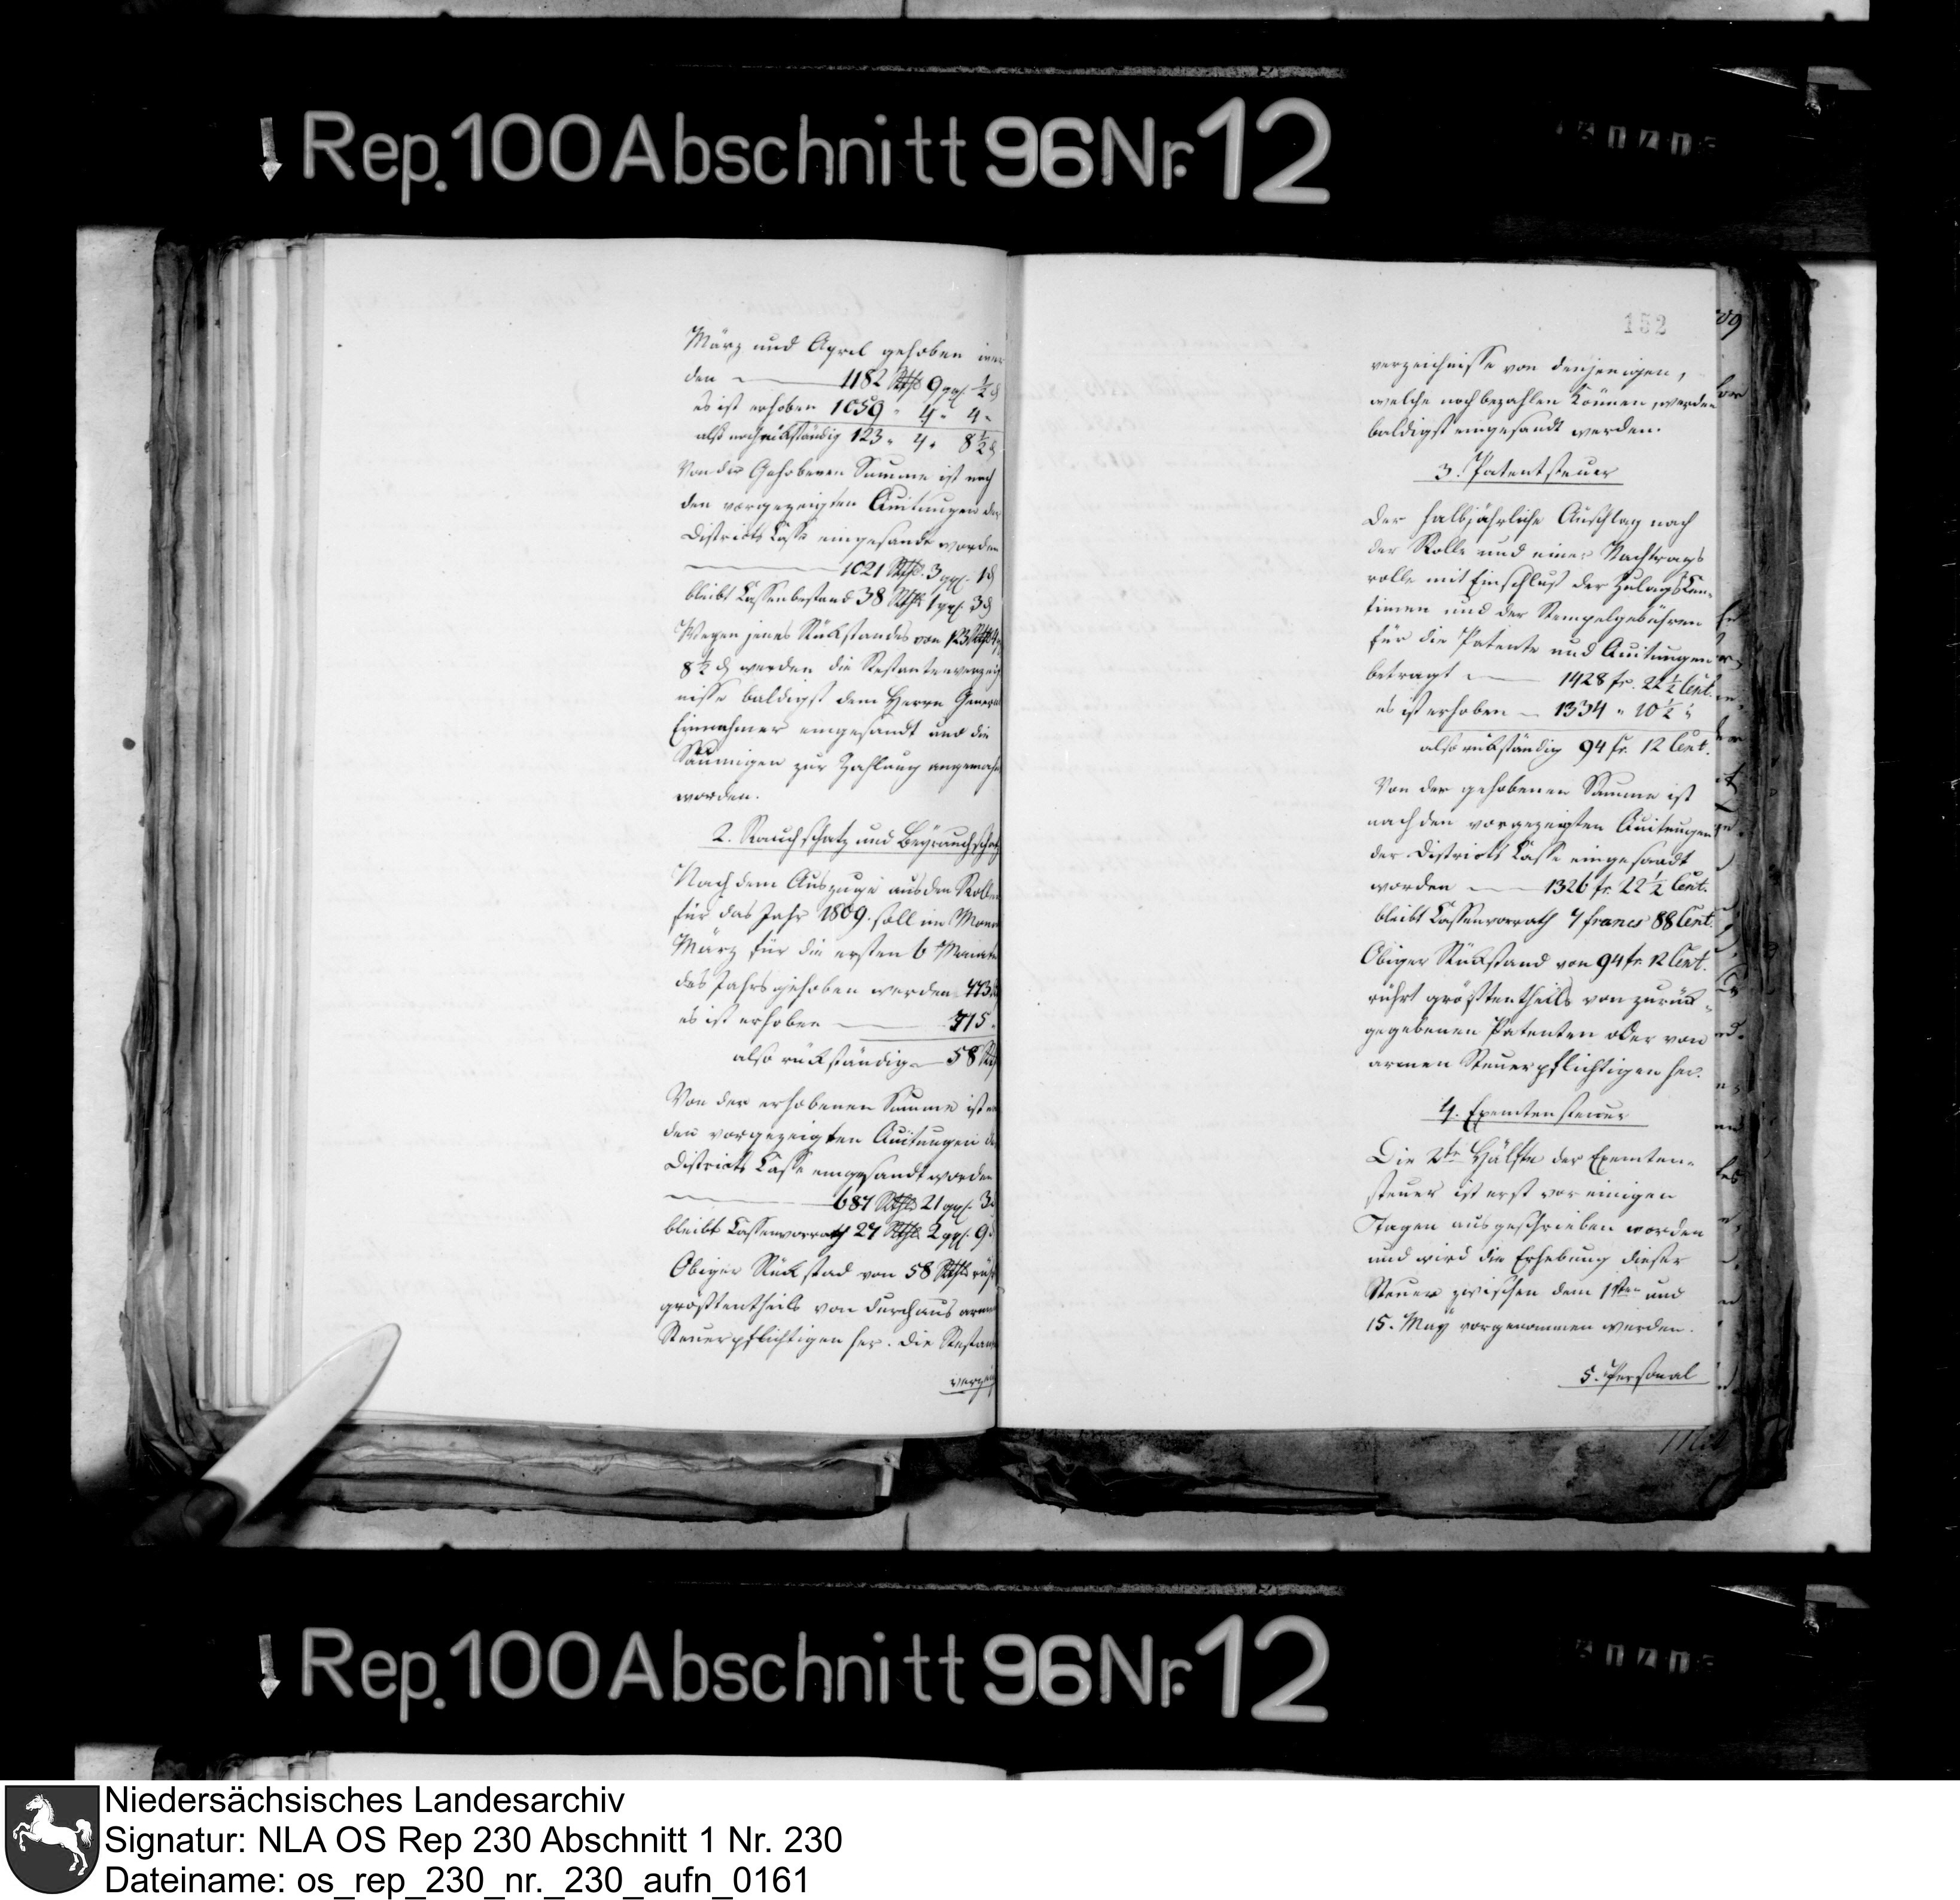 Rep. 100 Abschnitt 96 Nr. 12
März und April gehoben wer
den 1182 Rthlr 9 ggr. ½ d
es ist erhoben 1059 " 4 " 4 "
also noch rükständig 123 " 4 " 8½ d
Von der Gehobenen Summe ist nach
den vorgezeigten Quitungen der
Districts Casse eingesandt worden
1021 Rthlr. 3 ggr. 1 d
bleibt Cassenbestand 38 Rthlr 1 ggr. 3 d
Wegen jenes Rükstandes von 123 Rthlr 4
8½ d werden die Restantenverzeich
nisse baldigst dem Herrn General
Einnehmer eingesandt und die
Säumigen zur Zahlung angemahnt
worden.
2. Rauchschatz und Beyrauchschatz
Nach dem Auszuge aus den Rollen
für das Jahr 1809. soll im Monat
März für die ersten 6 Monate
des Jahrs gehoben werden 773
es ist erhoben 715
also rükständig 58 Rthlr
Von der erhobenen Summe ist
den vorgezeigten Quitungen der
Districts Casse eingesandt worden
687 Rthlr 21 ggr. 3
bleibt Cassenvorrath 27 Rthlr 2 ggr. 9
Obiger Rükstad von 58 Rthlr rührt
grösstentheils von durchaus armen
Steuerpflichtigen her. Die Restanten
verzeich
152
verzeichnisse von denjenigen,
welche noch bezahlen können, werden
baldigst eingesandt werden.
3. Patentsteuer
Der halbjährliche Anschlag nach
der Rolle und einer Nachtrags
rolle mit Einschluß der Zulags Cen-
timen und der Stempelgebühren
für die Patente und Quitungen
betragt 1428 fr. 22½ Cent.
es ist erhoben 1334 " 10½ "
also rükständig 94 fr. 12 Cent.
Von der gehobenen Summe ist
nach den vorgezeigten Quitungen
der Districts Casse eingesandt
worden 1326 fr. 22½ Cent.
bleibt Cassenvorrath 7 francs 88 Cent.
Obiger Rükstand von 94 fr. 12 Cent.
rührt grösstentheils von zurük-
gegebenen Patenten oder von
armen Steuerpflichtigen her.
4. Exemtensteuer
Die 2te Hälfte der Exemten-
steuer ist erst vor einigen
Tagen ausgeschrieben worden
und wird die Erhebung dieser
Steuer zwischen dem 1sten und
15. May vorgenommen werden.
5. Personal
Rep. 100 Abschnitt 96 Nr. 12
Niedersächsisches Landesarchiv
Signatur: NLA OS Rep 230 Abschnitt 1 Nr. 230
Dateiname: os_rep_230_nr._230_aufn_0161